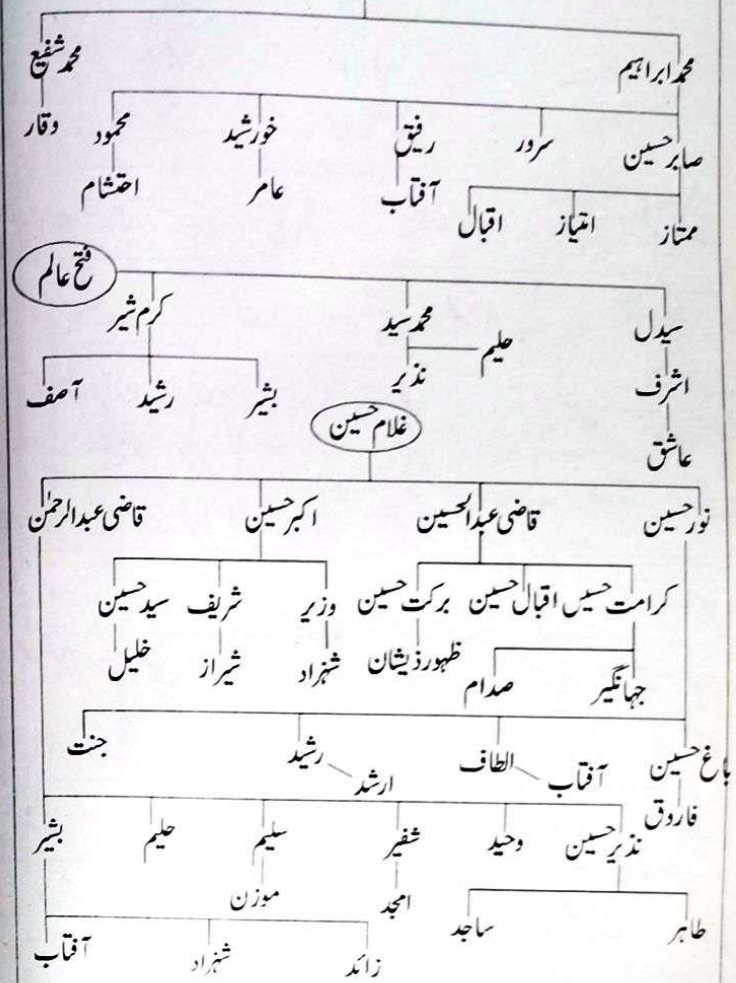 محمد ابراہیم محمد شفیع
صابر حسین سرور رفیق خورشید محمود وقار
ممتاز امتیاز اقبال آفتاب عامر احتشام
فتح عالم
سیدل محمد سید کرم شیر
اشرف حلیم نذیر بشیر رشید آصف
عاشق
غلام حسین
نور حسین قاضی عبدالحسین اکبر حسین قاضی عبدالرحمٰن
کرامت حسیں اقبال حسین برکت حسین وزیر شریف سید حسین
جہانگیر صدام ظہور ذیشان شہزاد شیراز خلیل
باغ حسین الطاف رشید جنت
فاروق آفتاب ارشد
نذیر حسین وحید شفیر سلیم حلیم بشیر
طاہر ساجد امجد موزن
زائد شہزاد آفتاب